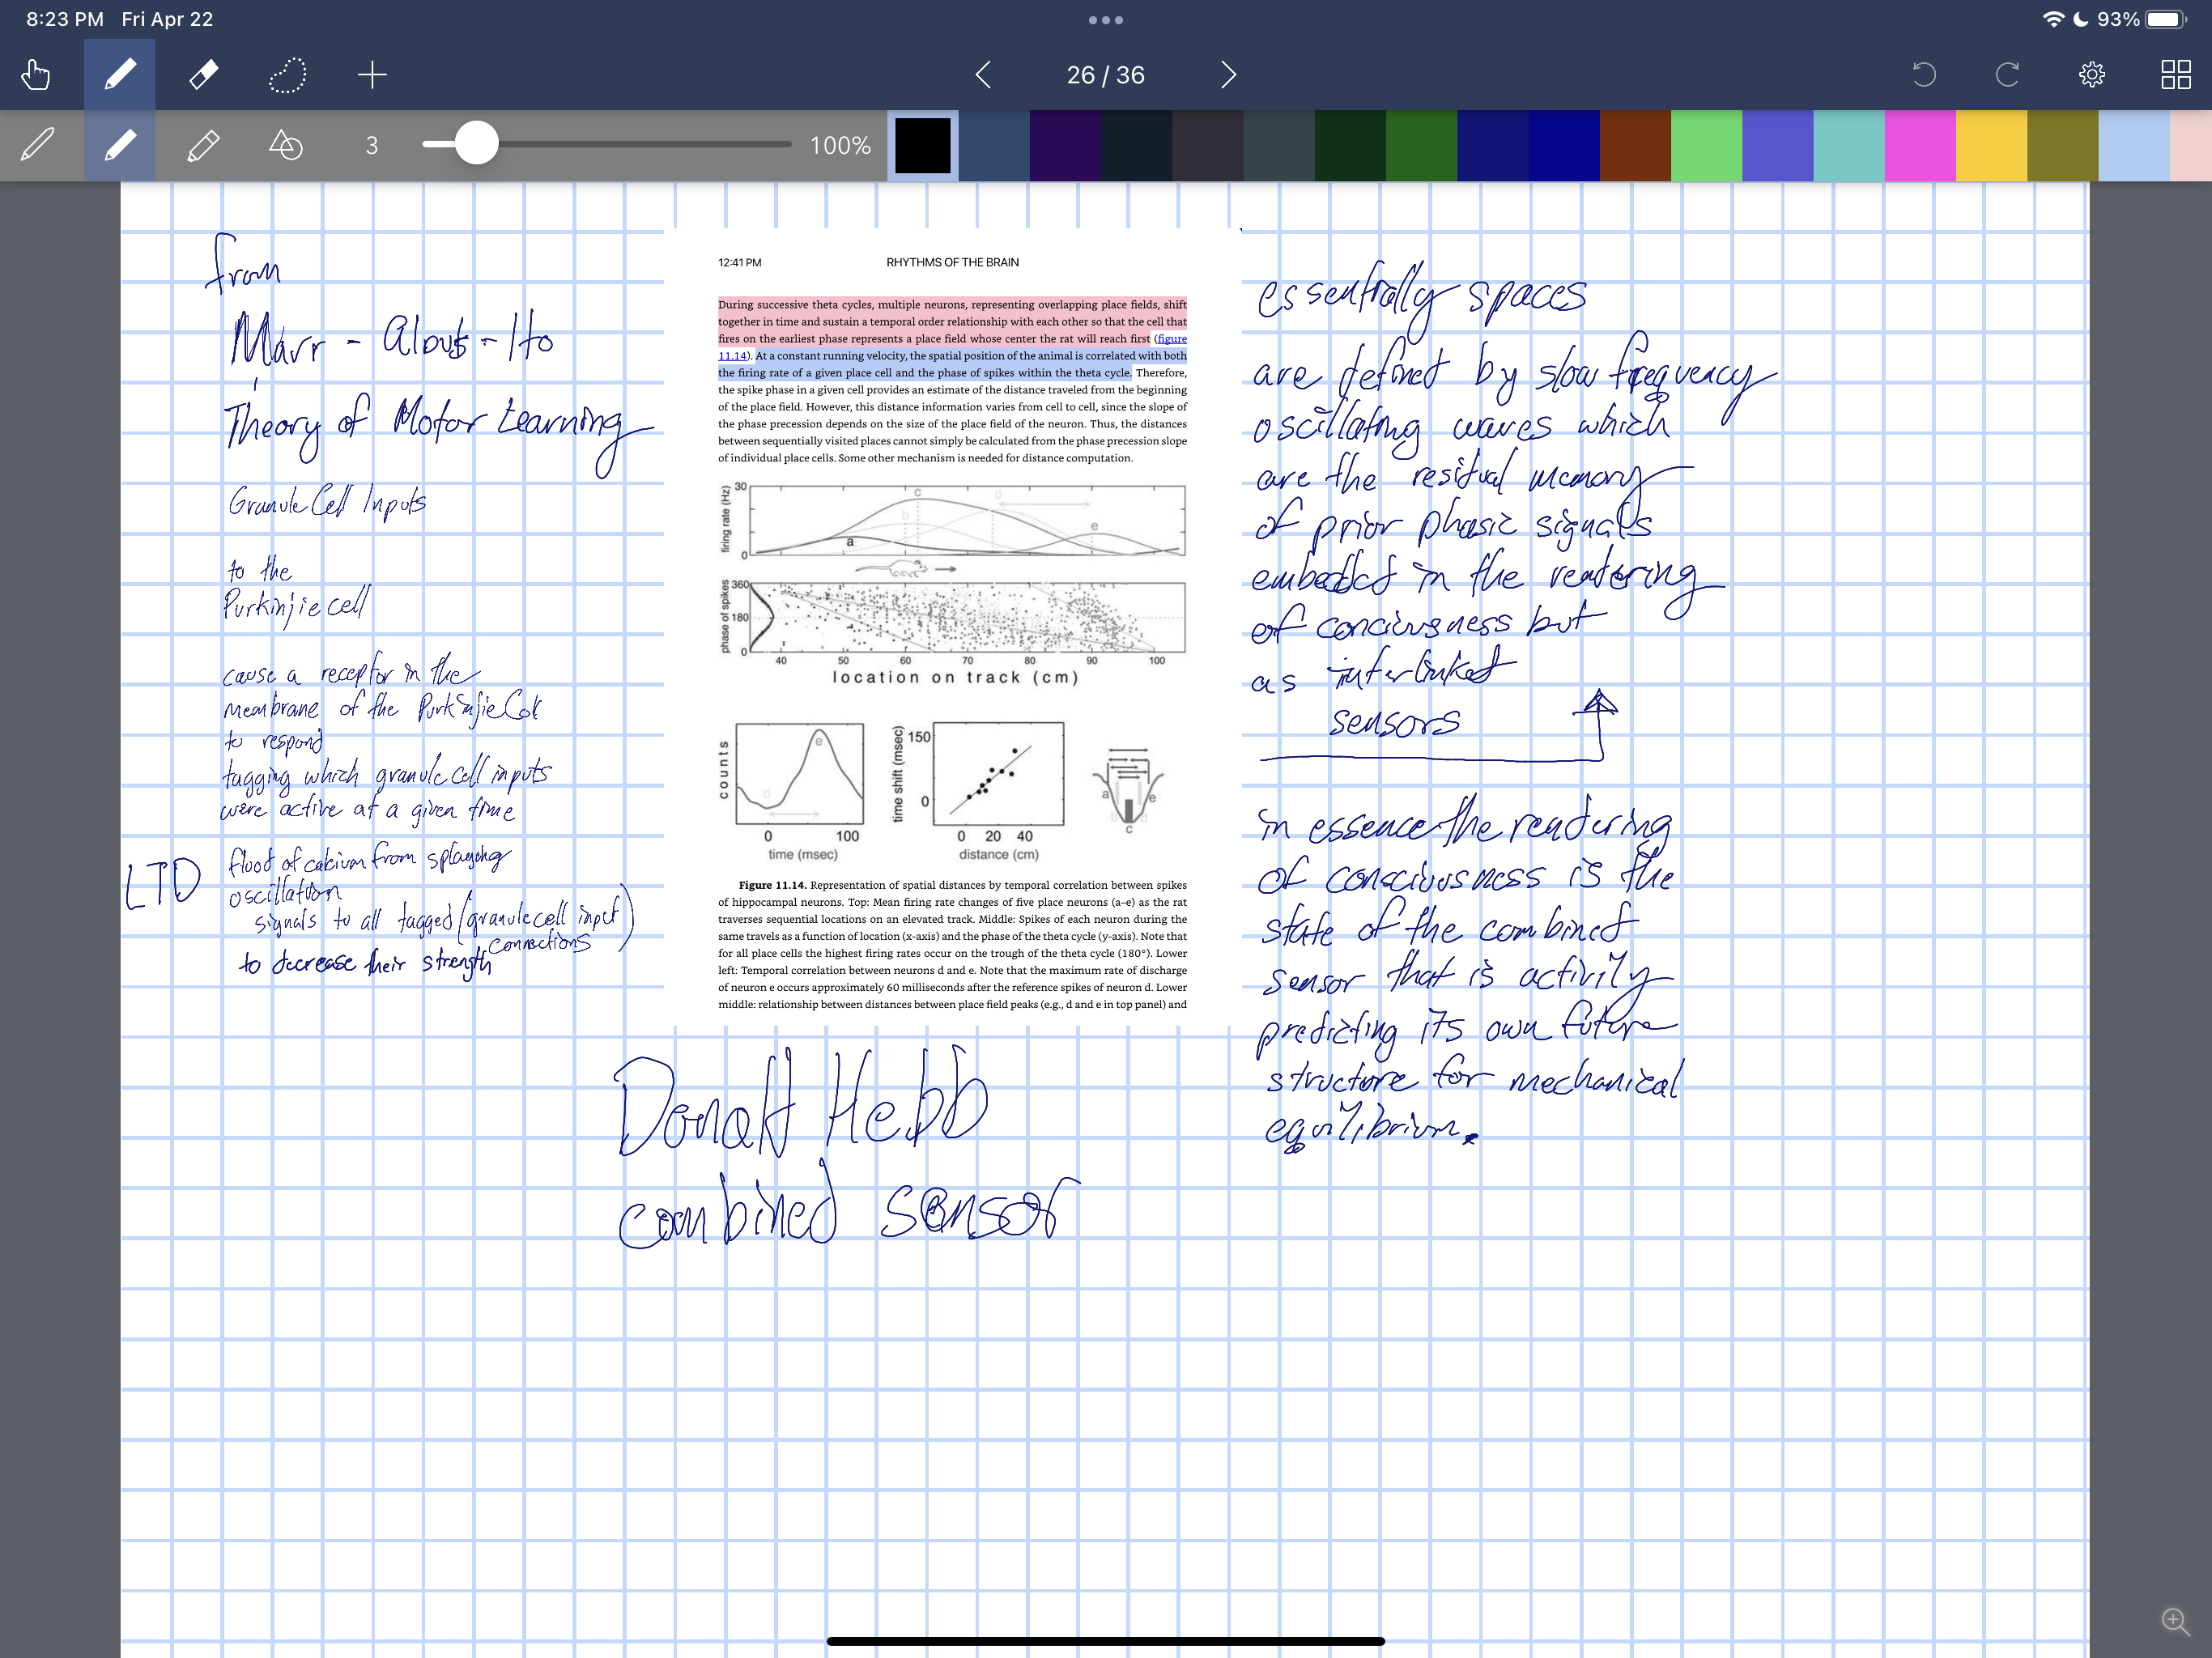 8:23 PM Fri Apr 22
93%
26 / 36
3
100%
from
Marr - Albus - Ito
Theory of Motor Learning
Granule Cell Inputs
to the
Purkinjie cell
cause a receptor in the
membrane of the Purkinjie Cell
to respond
tagging which granule cell inputs
were active at a given time
LTD
flood of calcium from
oscillation
signals to all tagged (granule cell input
connections)
to decrease their strength
12:41 PM
RHYTHMS OF THE BRAIN
During successive theta cycles, multiple neurons, representing overlapping place fields, shift
together in time and sustain a temporal order relationship with each other so that the cell that
fires on the earliest phase represents a place field whose center the rat will reach first (figure
11.14). At a constant running velocity, the spatial position of the animal is correlated with both
the firing rate of a given place cell and the phase of spikes within the theta cycle. Therefore,
the spike phase in a given cell provides an estimate of the distance traveled from the beginning
of the place field. However, this distance information varies from cell to cell, since the slope of
the phase precession depends on the size of the place field of the neuron. Thus, the distances
between sequentially visited places cannot simply be calculated from the phase precession slope
of individual place cells. Some other mechanism is needed for distance computation.
firing rate (Hz)
30
0
a
b
c
d
e
phase of spikes
360
180
0
40 50 60 70 80 90 100
location on track (cm)
counts
d
e
0 100
time (msec)
time shift (msec)
150
0
0 20 40
distance (cm)
a
b
c
d
e
Figure 11.14. Representation of spatial distances by temporal correlation between spikes
of hippocampal neurons. Top: Mean firing rate changes of five place neurons (a–e) as the rat
traverses sequential locations on an elevated track. Middle: Spikes of each neuron during the
same travels as a function of location (x-axis) and the phase of the theta cycle (y-axis). Note that
for all place cells the highest firing rates occur on the trough of the theta cycle (180°). Lower
left: Temporal correlation between neurons d and e. Note that the maximum rate of discharge
of neuron e occurs approximately 60 milliseconds after the reference spikes of neuron d. Lower
middle: relationship between distances between place field peaks (e.g., d and e in top panel) and
Donald Hebb
combined sensor
essentially spaces
are defined by slow frequency
oscillating waves which
are the residual memory
of prior phasic signals
embedded in the rendering
of conciousness but
as interlinked
sensors
in essence the rendering
of consciousness is the
state of the combined
sensor that is activily
predicting its own future
structure for mechanical
equilibrium.